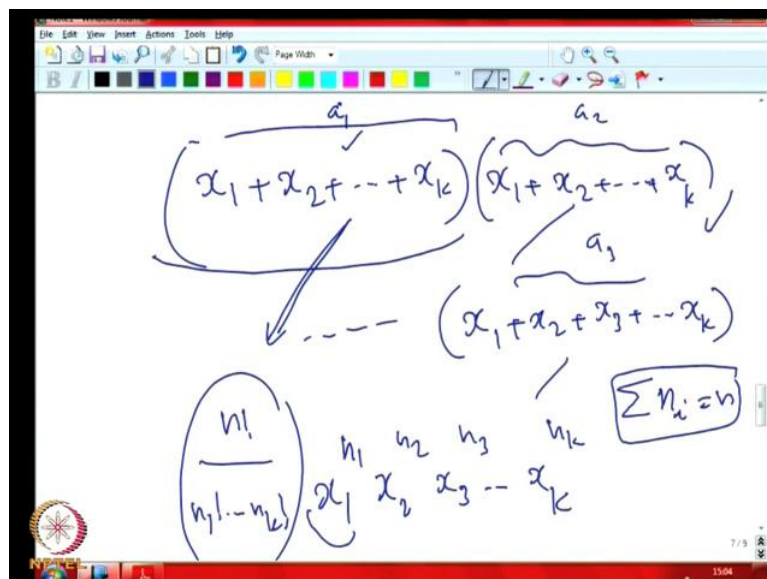 File Edit View Insert Actions Tools Help
Page Width
B I
a₁ a₂
(x₁ + x₂ + -- + xₖ) (x₁ + x₂ + -- + xₖ)
a₃
---- (x₁ + x₂ + x₃ + -- xₖ)
n!
n₁! -- nₖ!
n₁ n₂ n₃ nₖ
x₁ x₂ x₃ -- xₖ
∑ nᵢ = n
7/9
NPTEL
15:04